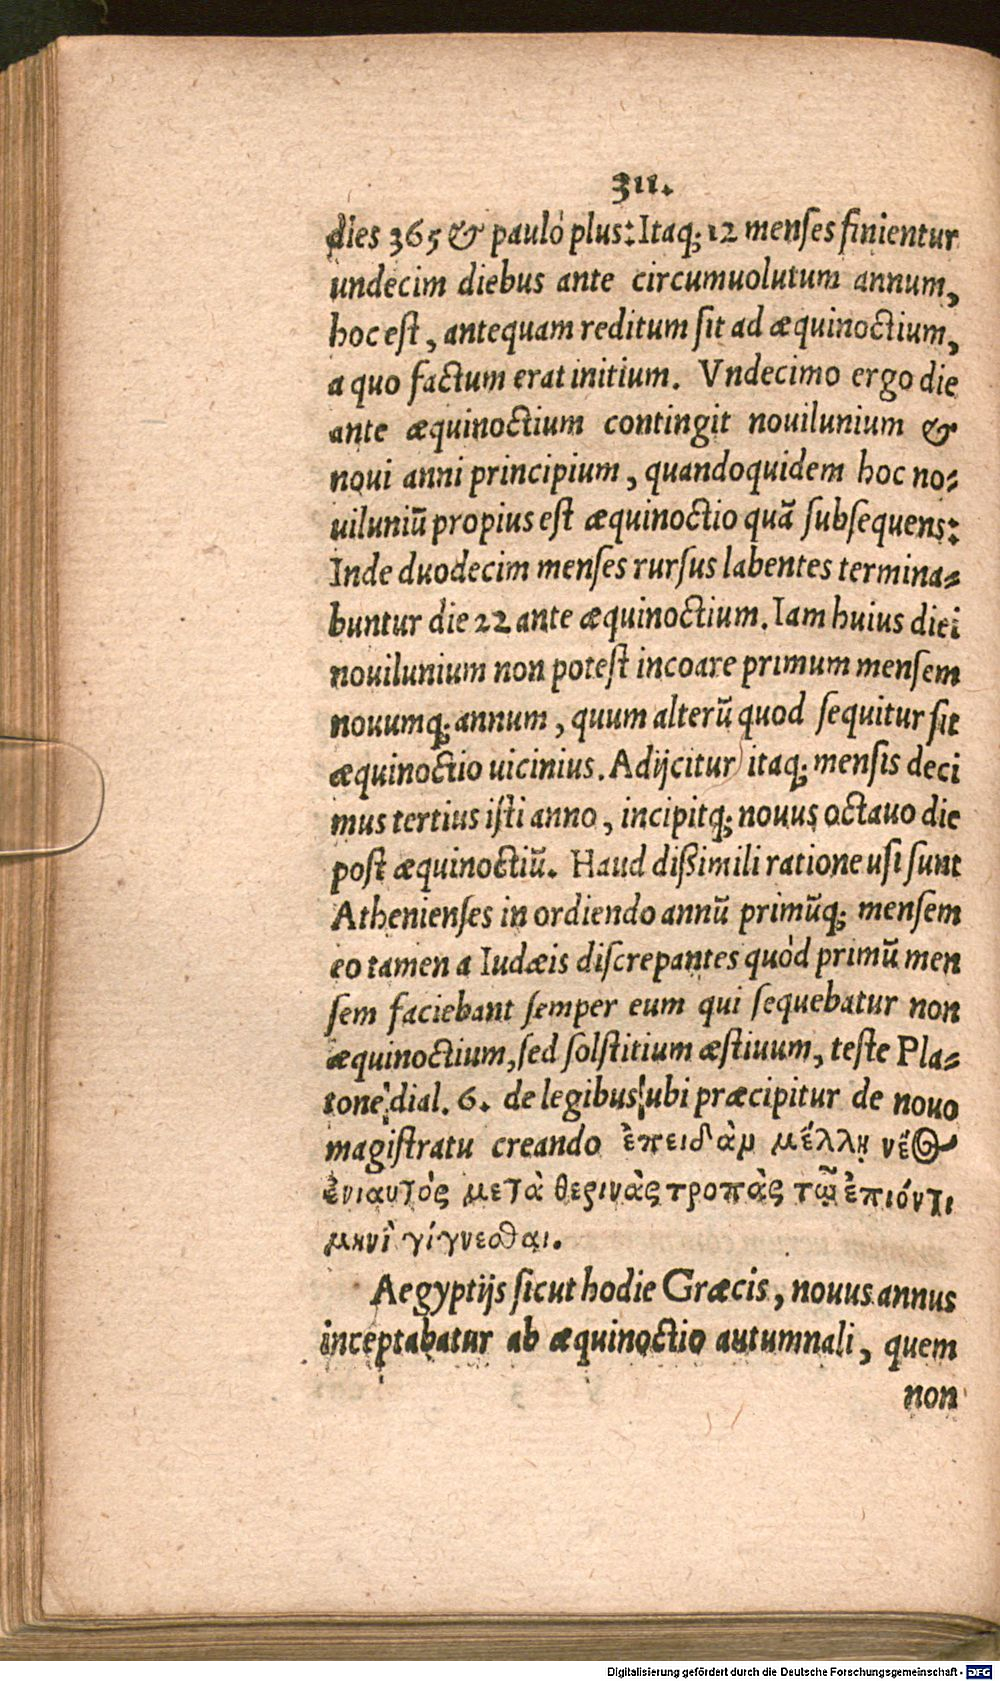 311.
dies 365 & pauló plus: Itaq; 12 menses finientur
undecim diebus ante circumuolutum annum,
hoc est, antequam reditum sit ad æquinoctium,
a quo factum erat initium. Vndecimo ergo die
ante æquinoctium contingit nouilunium &
noui anni principium, quandoquidem hoc no-
uiluniũ propius est æquinoctio quã subsequens:
Inde duodecim menses rursus labentes termina-
buntur die 22 ante æquinoctium. Iam huius diei
nouilunium non potest incoare primum mensem
nouumq; annum, quum alterũ quod sequitur sit
æquinoctio uicinius. Adijcitur itaq; mensis deci
mus tertius isti anno, incipitq; nouus octauo die
post æquinoctiũ. Haud dißimili ratione usi sunt
Athenienses in ordiendo annũ primũq; mensem
eo tamen a Iudæis discrepantes quòd primũ men
sem faciebant semper eum qui sequebatur non
æquinoctium, sed solstitium æstiuum, teste Pla-
tone dial. 6. de legibus ubi præcipitur de nouo
magistratu creando ἐπειδὰμ μέλλῃ νέος
ἐνιαυτὸς μετὰ θερινὰς τροπὰς τῷ ἐπιόντι
μηνὶ γίγνεσθαι.
Aegyptijs sicut hodie Græcis, nouus annus
inceptabatur ab æquinoctio autumnali, quem
non
Digitalisierung gefördert durch die Deutsche Forschungsgemeinschaft - DFG